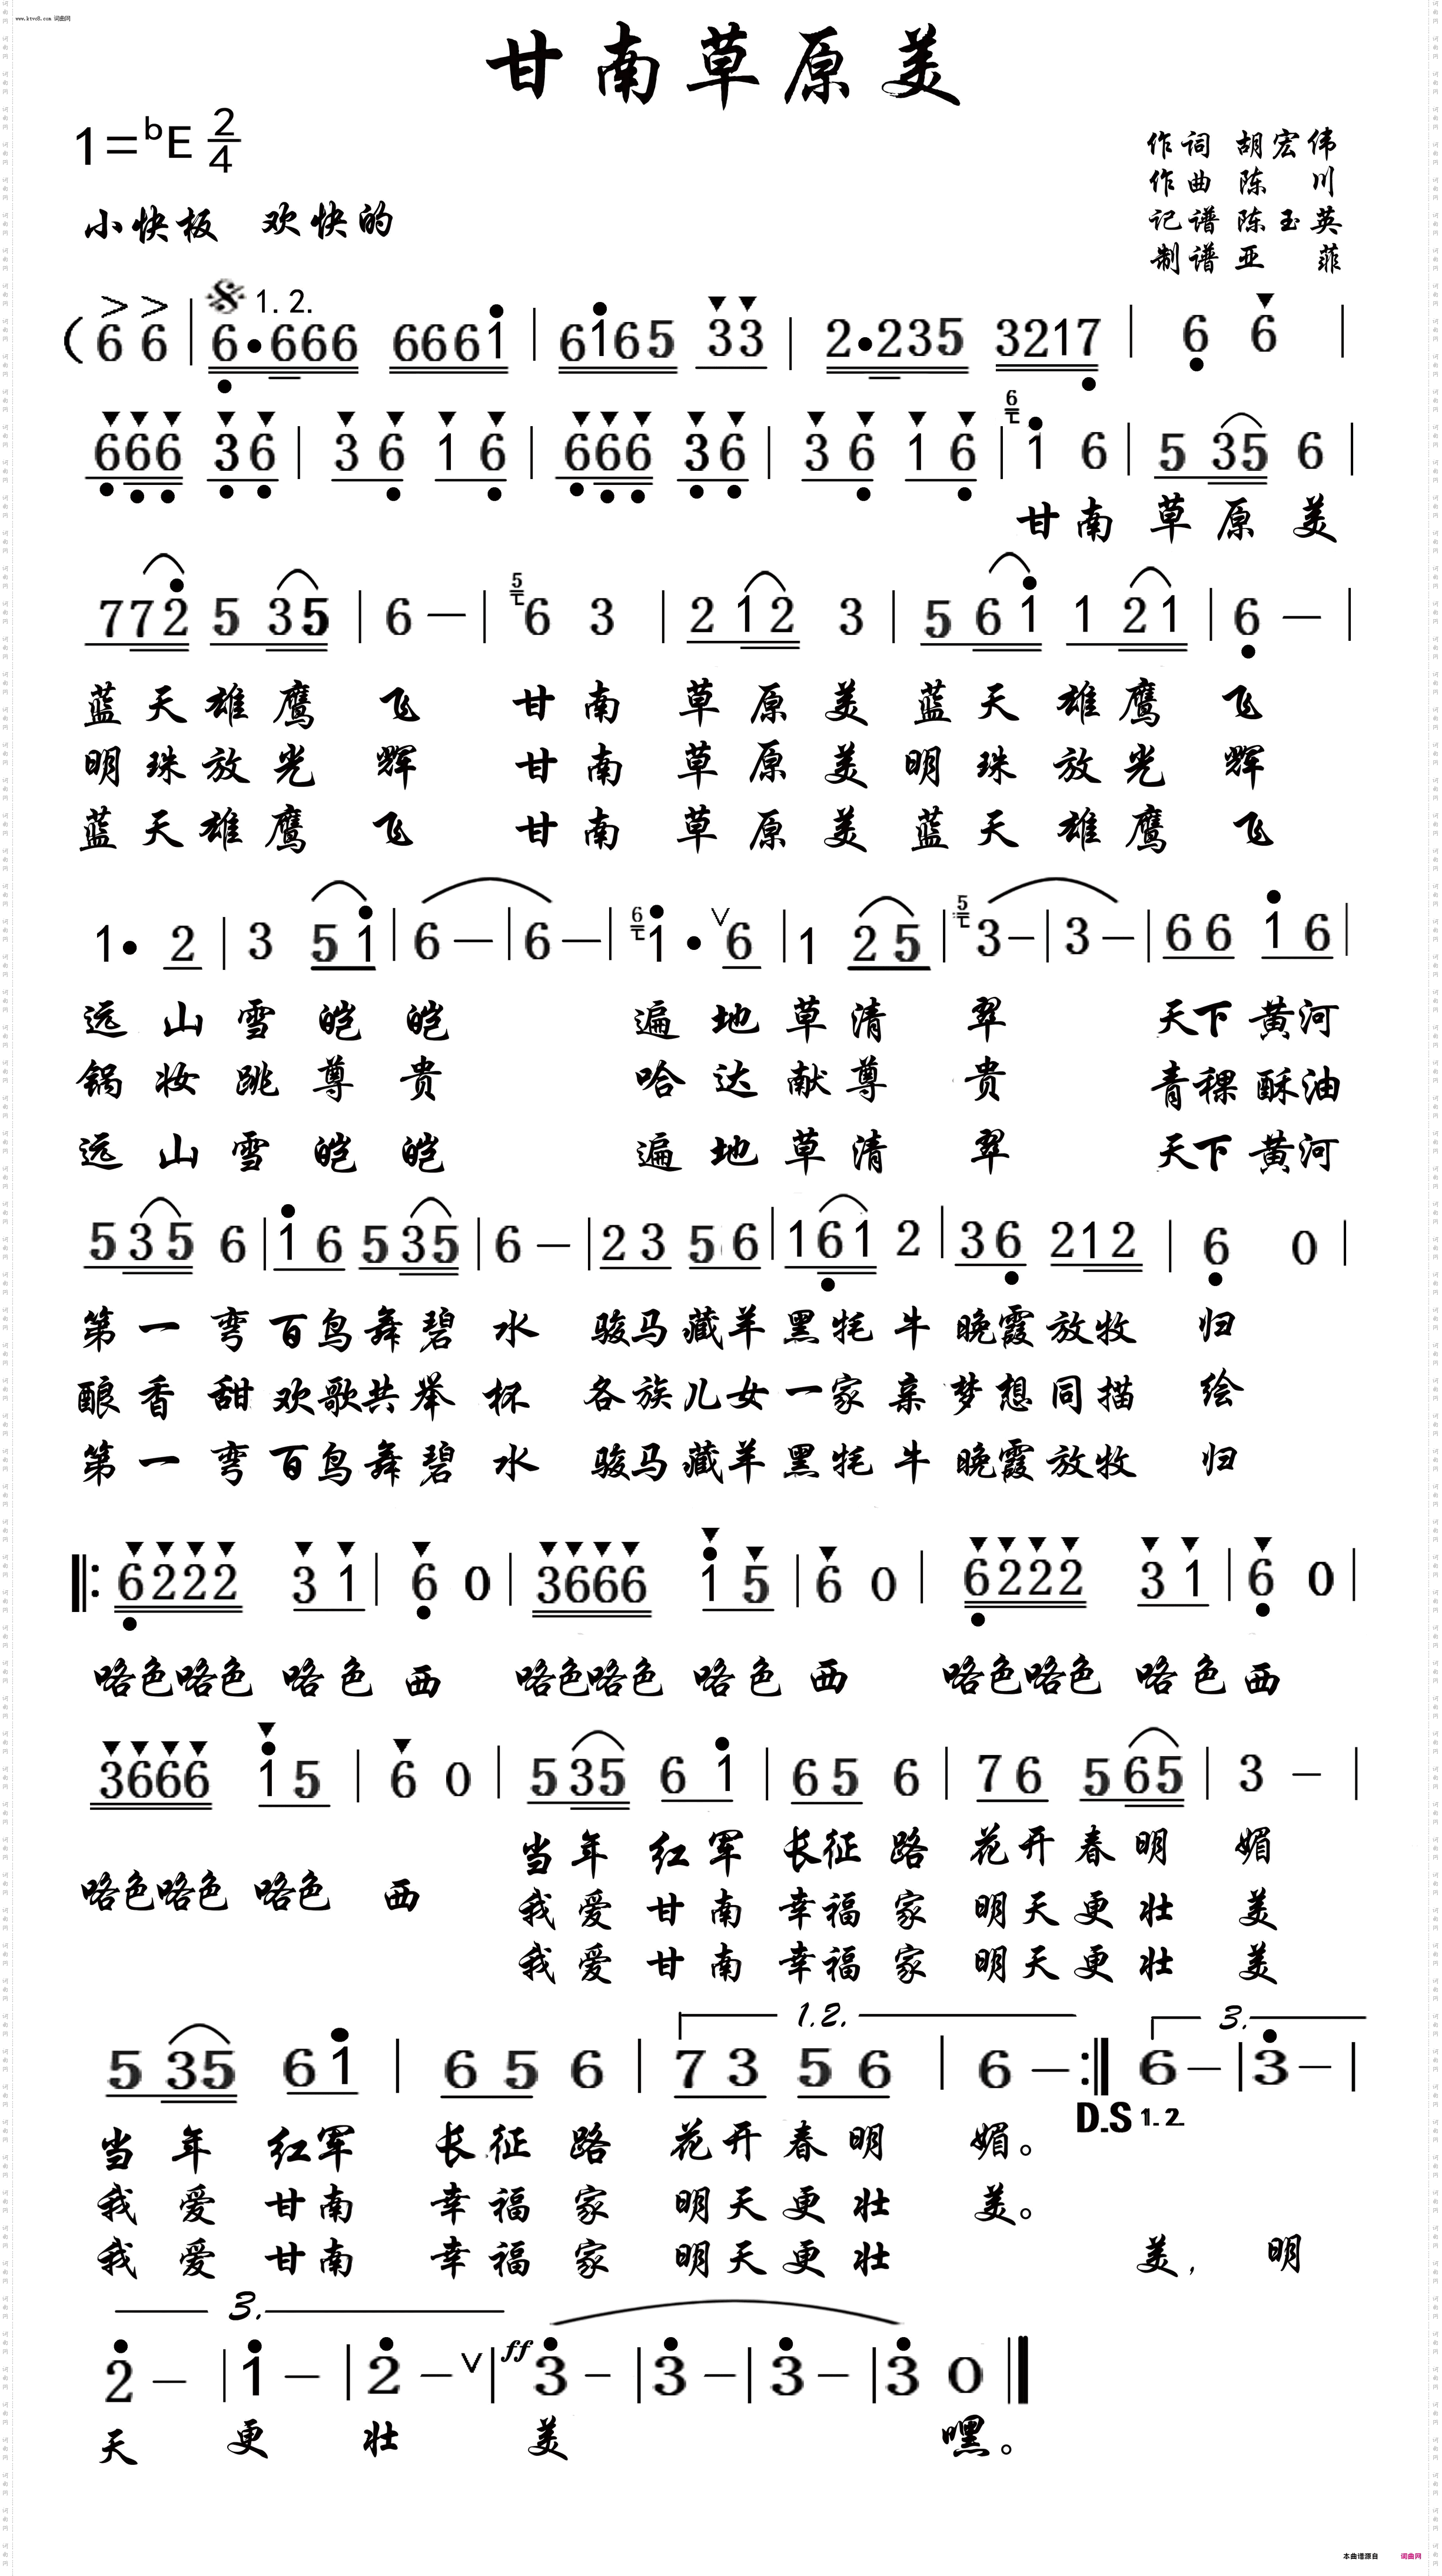 www.ktvc8.com 词曲网
甘南草原美
1=bE 2/4
作词 胡宏伟
作曲 陈川
小快板 欢快的
记谱 陈玉英
制谱 亚菲
(6 6 | 6·666 6661 | 6165 33 | 2·235 3217 | 6 6 |
1.2.
666 36 | 36 16 | 666 36 | 36 16 | 6 1 6 | 5 35 6 |
甘南 草原美
772 5 35 | 6 — | 5 6 3 | 2 12 3 | 5 61 1 21 | 6 — |
蓝天雄鹰 飞 甘南 草原美 蓝天 雄鹰 飞
明珠放光 辉 甘南 草原美 明珠 放光 辉
蓝天雄鹰 飞 甘南 草原美 蓝天 雄鹰 飞
1· 2 | 3 51 | 6 — | 6 — | 6 1· 6 | 1 25 | 5 3 — | 3 — | 66 16 |
远山雪皑皑 遍地草清翠 天下黄河
锅妆跳尊贵 哈达献尊贵 青稞酥油
远山雪皑皑 遍地草清翠 天下黄河
5 35 6 | 16 5 35 | 6 — | 23 56 | 1 61 2 | 36 212 | 6 0 |
第一弯百鸟舞碧水 骏马藏羊黑牦牛晚霞放牧 归
酿香甜欢歌共举杯 各族儿女一家亲梦想同描 绘
第一弯百鸟舞碧水 骏马藏羊黑牦牛晚霞放牧 归
‖: 6222 31 | 6 0 | 3666 15 | 6 0 | 6222 31 | 6 0 |
咯色咯色 咯色西 咯色咯色 咯色西 咯色咯色 咯色西
3666 15 | 6 0 | 5 35 61 | 65 6 | 76 5 65 | 3 — |
当年 红军 长征路 花开春明 媚
咯色咯色 咯色 西
我爱 甘南 幸福家 明天更壮 美
我爱 甘南 幸福家 明天更壮 美
1.2. 3.
5 35 61 | 65 6 | 73 56 | 6 — :‖ 6 — | 3 — |
D.S 1.2.
当年 红军 长征路 花开春明 媚。
我爱 甘南 幸福家 明天更壮 美。
我爱 甘南 幸福家 明天更壮 美, 明
3.
2 — | 1 — | 2 — ∨ | ff 3 — | 3 — | 3 — | 3 0 ‖
天 更 壮 美 嘿。
本曲谱源自 词曲网